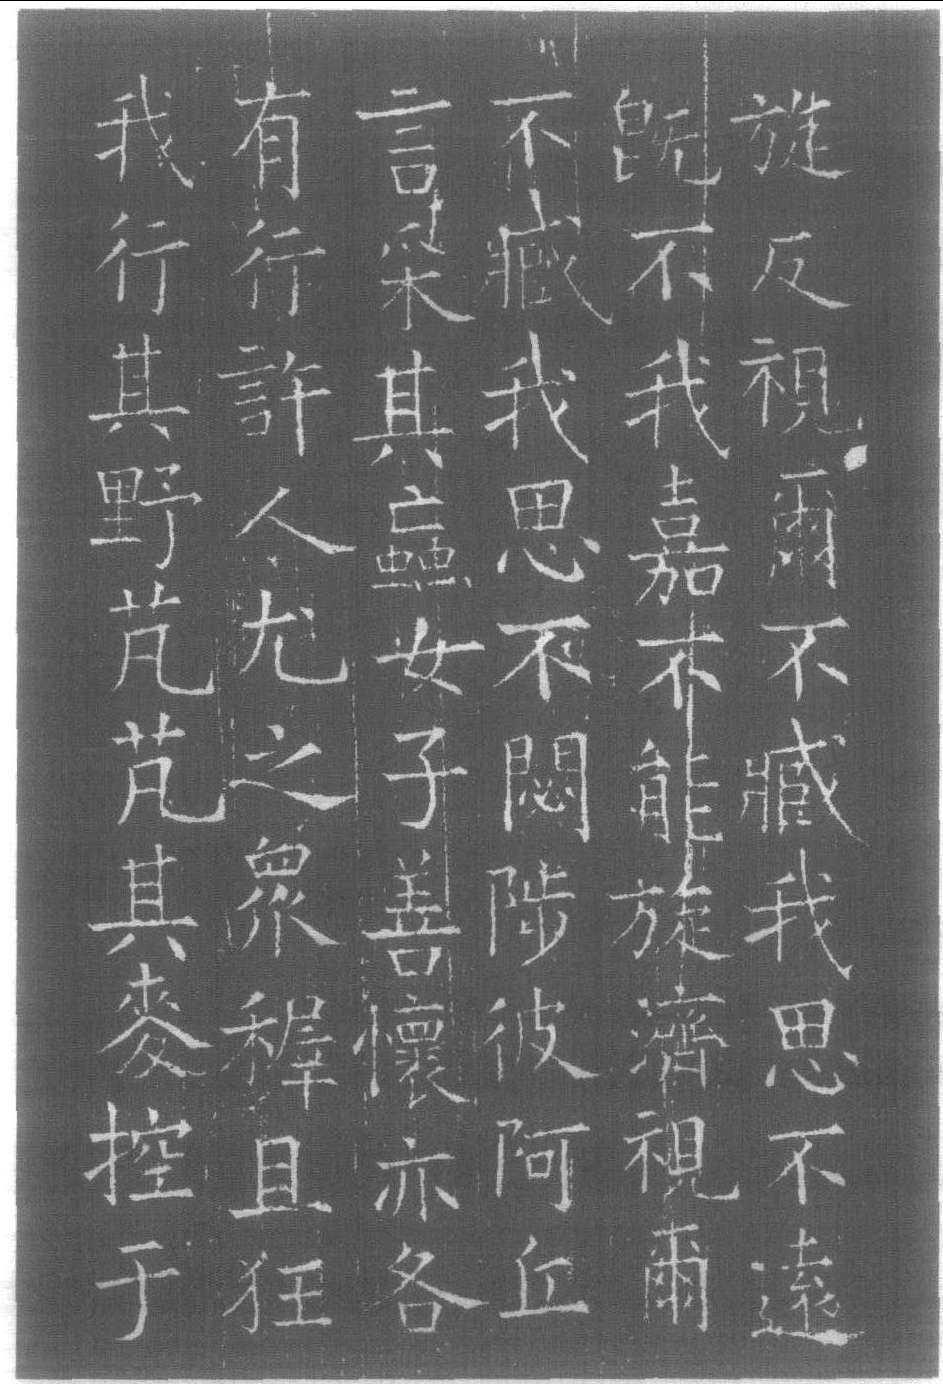 旋反視爾不臧我思不遠
既不我嘉不能旋濟視爾
不臧我思不閟陟彼阿丘
言采其蝱女子善懷亦各
有行許人尤之衆穉且狂
我行其野芃芃其麥控于